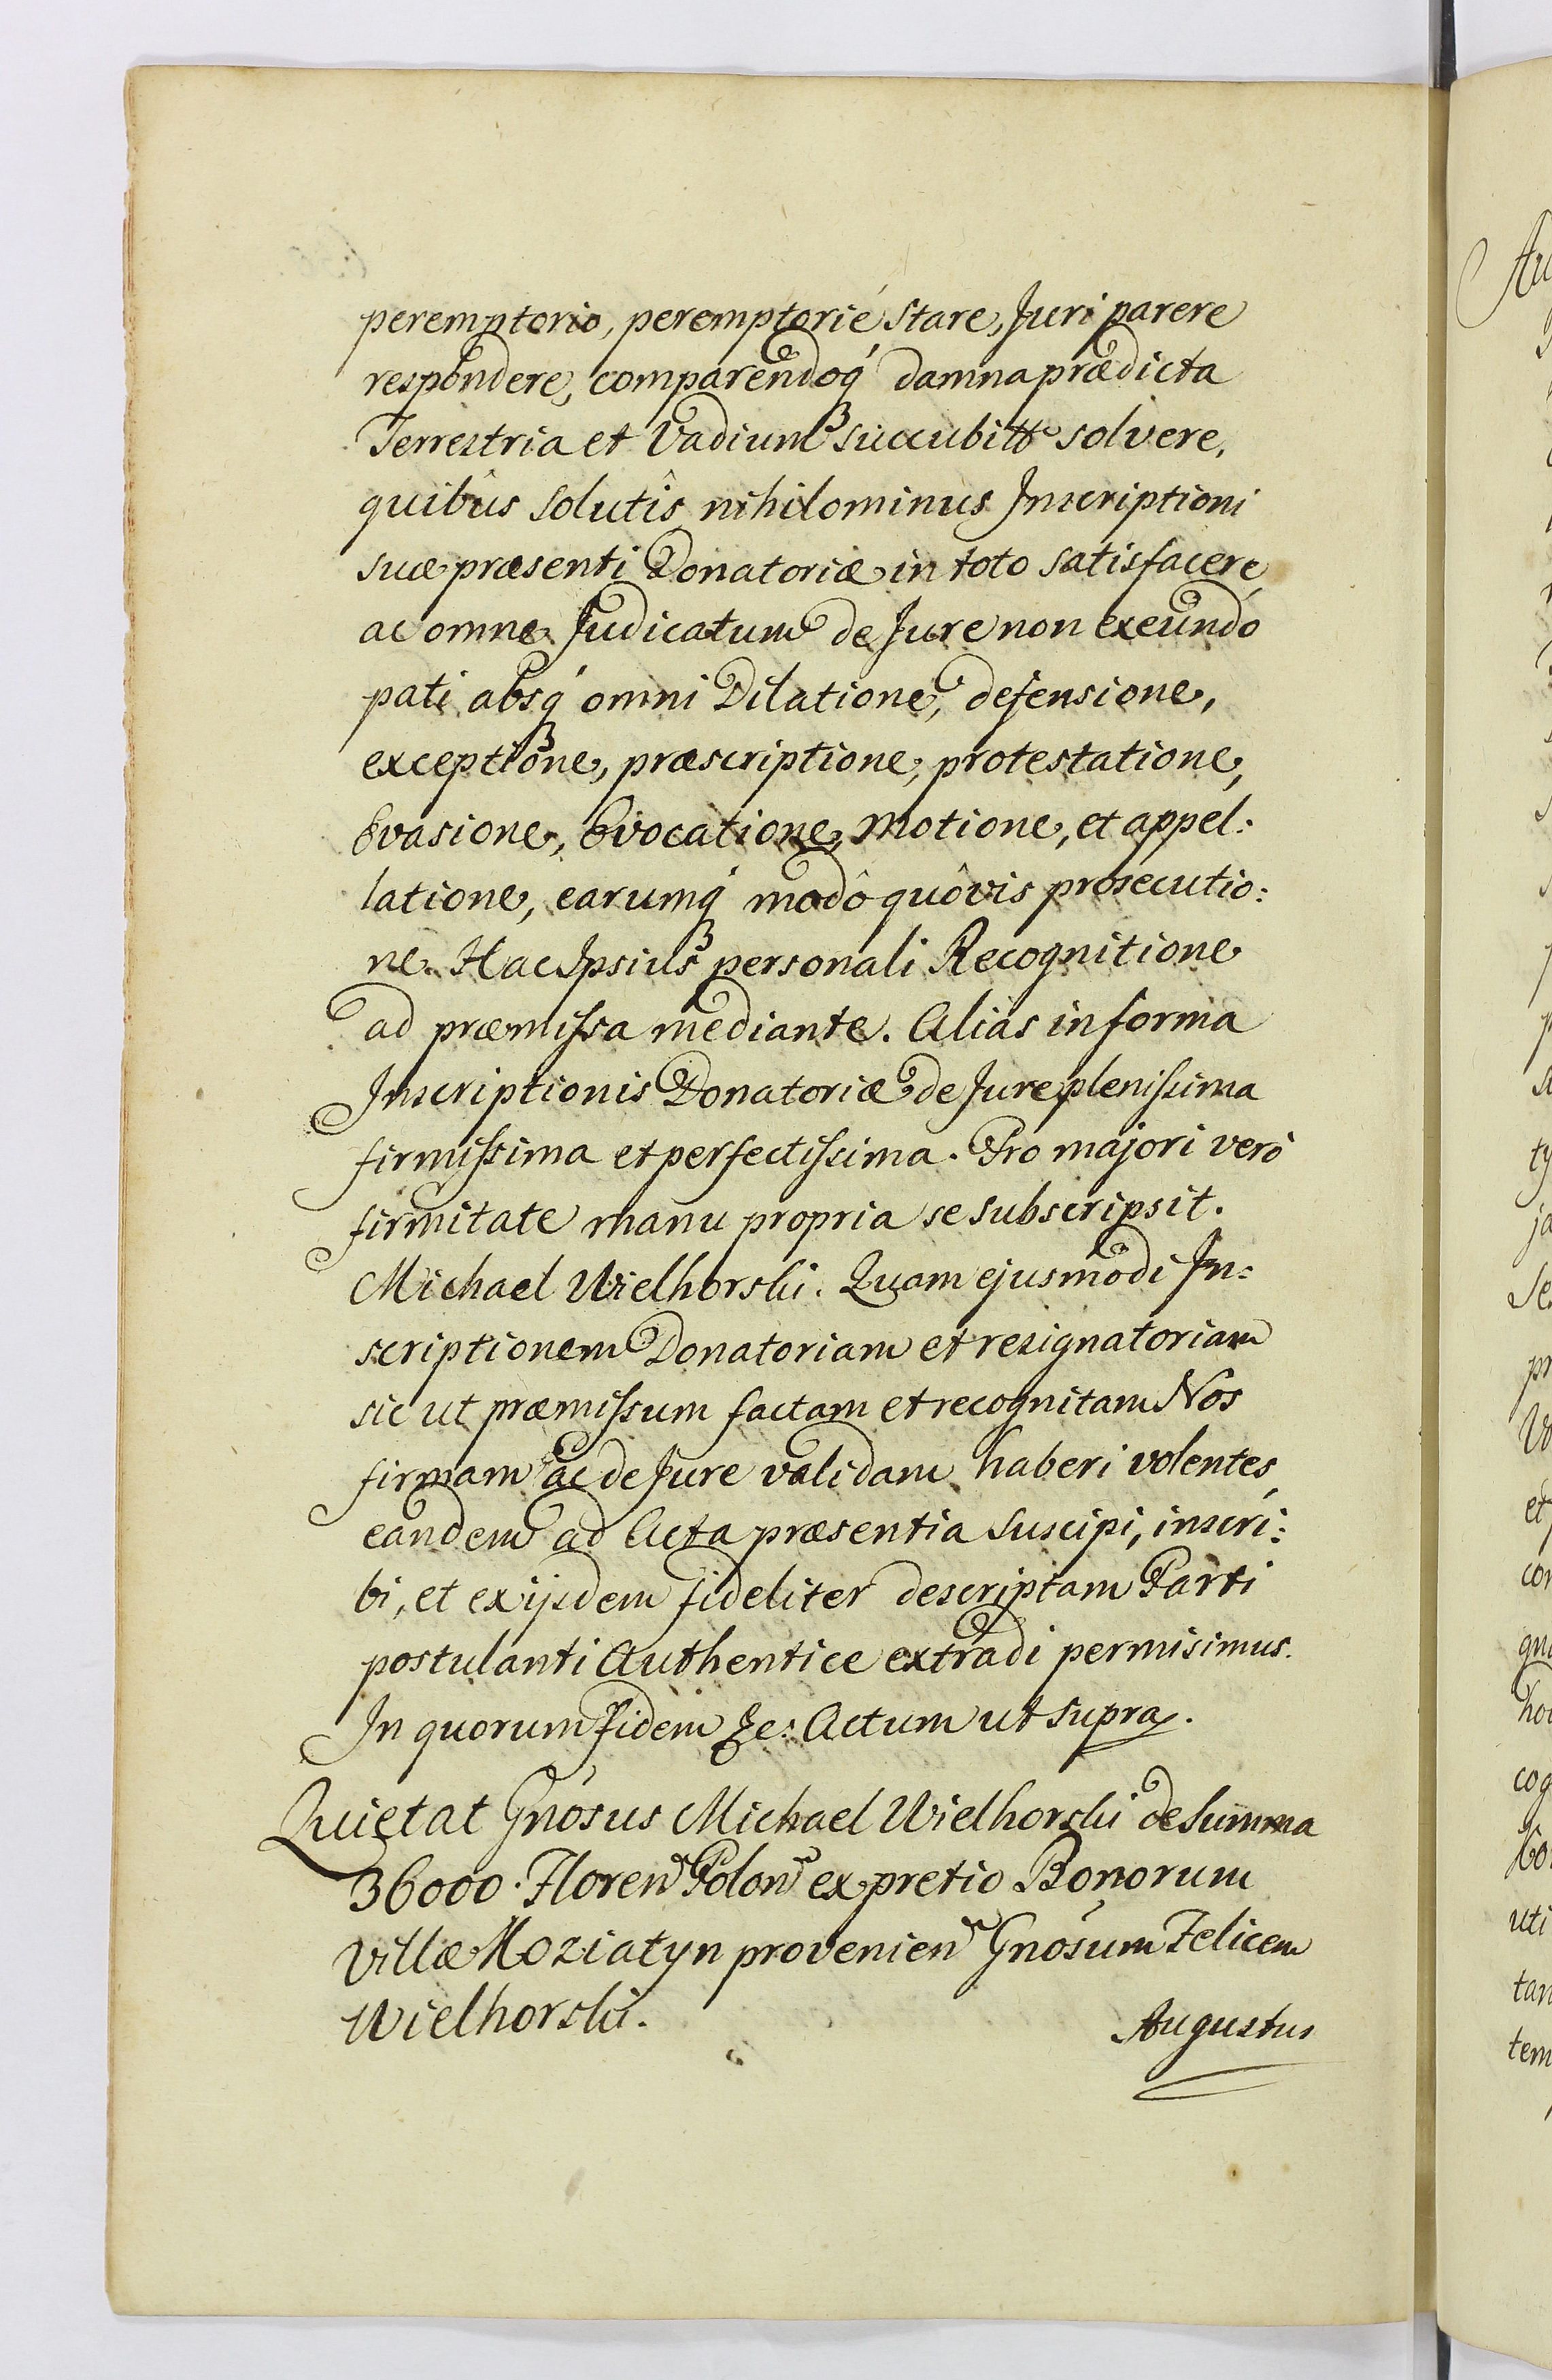 peremptorio, peremptorié stare, Juri parere
respondere, comparendoq́ꝫ damna prædicta
Terrestria et Vadium succubitæ solvere,
quibûs solutîs nihilominus Inscriptioni
suæ præsenti Donatoriæ in toto satisfacere,
ac omne Judicatum de Jure non exeundo
pati absq́ꝫ omni Dilatione, defensione,
exceptione, præscriptione, protestatione,
Evasione, Evocatione, Motione, et appel:
latione, earumq́ꝫ modô quôvis prosecutio:
ne. Hac Ipsius personali Recognitione
ad præmissa mediante. Alias in forma
Inscriptionis Donatoriæ de Jure plenissima
firmissima et perfectissima. Pro majori verò
firmitate manu propria se subscripsit.
Michael Wielhorski. Quam ejusmodi In:
scriptionem Donatoriam et resignatoriam
sic ut præmissum factam et recognitam Nos
firmam ac de Jure validam haberi volentes,
eandem ad Acta præsentia suscipi, inscri:
bi, et ex ijsdem fideliter descriptam Parti
postulanti Authentice extradi permisimus.
In quorum fidem &c: Actum ut supra.
Quietat Gnosus Michael Wielhorski de summa
36000. Floren Polon ex pretio Bonorum
Villæ Moziatyn provenien Gnosum Felicem
Wielhorski.
Augustus